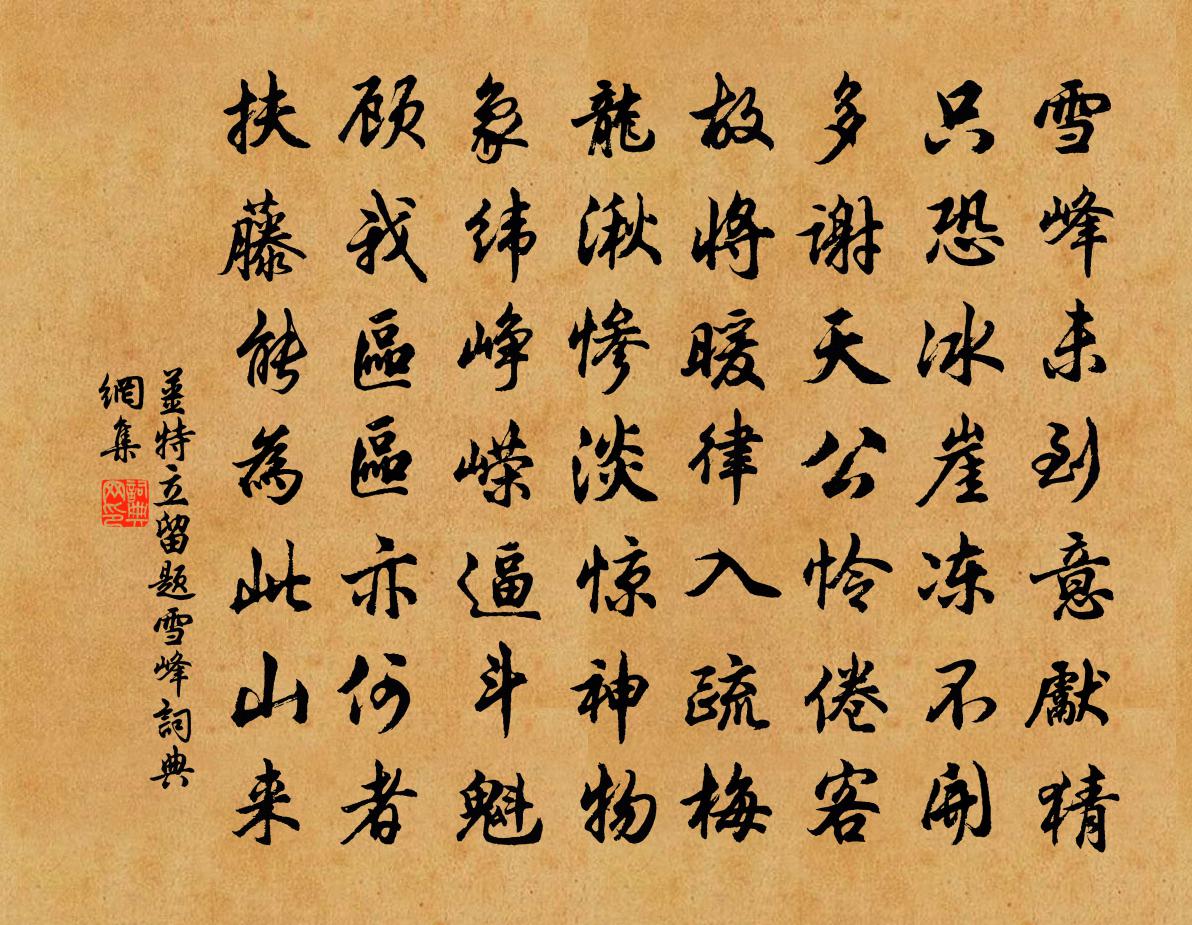 雪峰未到意獻猜
只恐冰崖冻不開
多謝天公怜倦客
故將暖律入疏梅
龍湫惨淡惊神物
象纬峥嵘逼斗魁
顾我區區亦何者
扶藤能為此山来
薑特立留题雪峰詞典
網集
詞典
网印